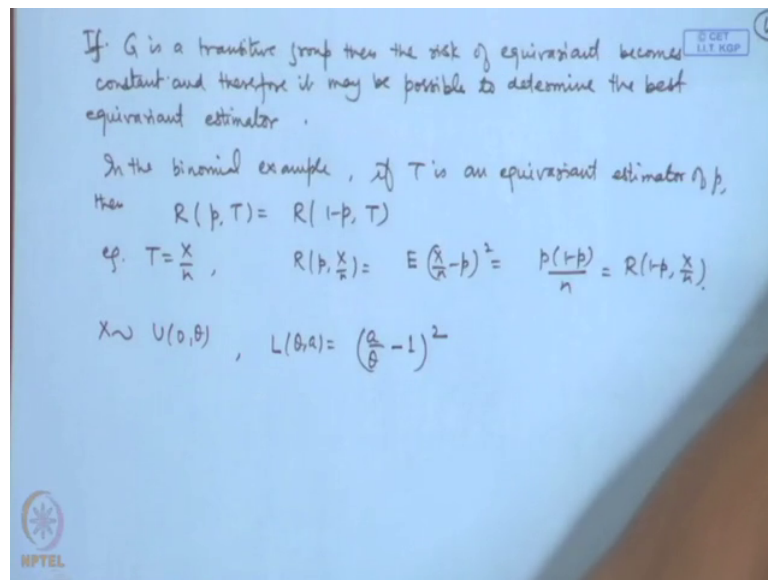 If G is a transitive group then the risk of equivariant becomes
© CET
I.I.T. KGP
constant and therefore it may be possible to determine the best
equivariant estimator.
In the binomial example, if T is an equivariant estimator of p,
then R(p, T) = R(1-p, T)
eg. T = X/n, R(p, X/n) = E(X/n - p)² = p(1-p)/n = R(1-p, X/n).
X ~ U(0, θ), L(θ, a) = (a/θ - 1)²
NPTEL